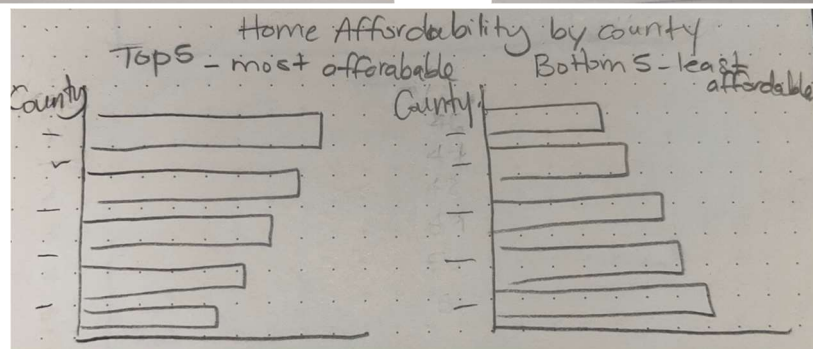 Home Affordability by county
Top 5 - most afforabable
Bottom 5 - least
affordable
County
County